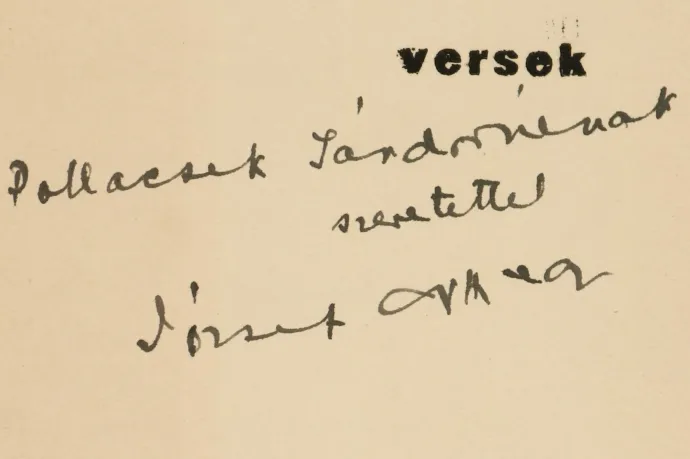 versek
Pollacsek Sándornénak
szeretettel
József Attila